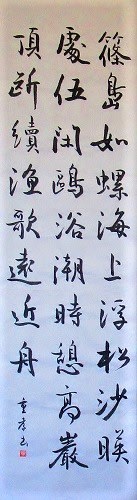 篠島如螺海上浮松沙暎
處伍閑鷗浴潮時憩高巖
頂断續漁歌遠近舟